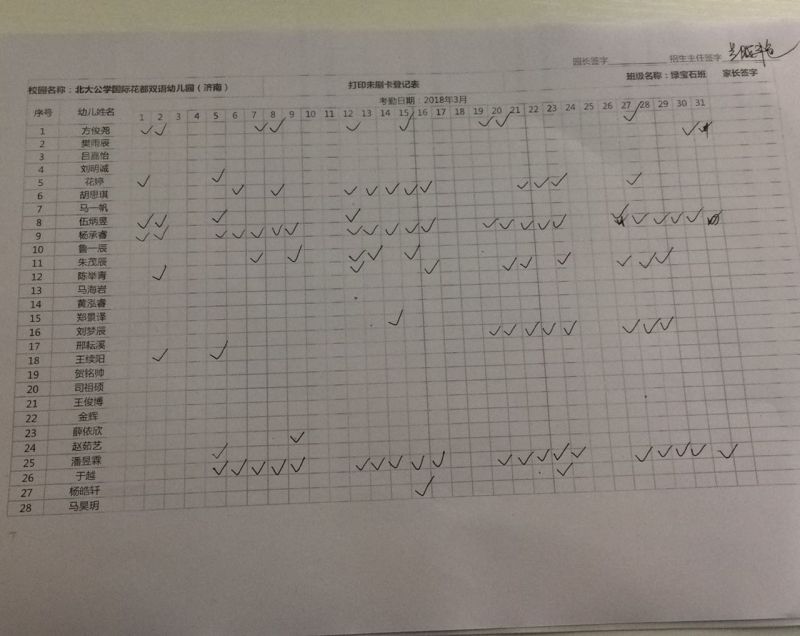 园长签字 招生主任签字
校园名称：北大公学国际花都双语幼儿园（济南） 打印未刷卡登记表 班级名称：绿宝石班 家长签字
考勤日期 2018年3月
序号 幼儿姓名 1 2 3 4 5 6 7 8 9 10 11 12 13 14 15 16 17 18 19 20 21 22 23 24 25 26 27 28 29 30 31
1 方俊尧
2 樊雨辰
3 吕嘉怡
4 刘明诚
5 花婷
6 胡思琪
7 马一帆
8 伍炳昱
9 杨承睿
10 鲁一辰
11 朱茂辰
12 陈举青
13 马海岩
14 黄泓睿
15 郑景译
16 刘梦辰
17 邢耘溪
18 王续阳
19 贺铭帅
20 司祖硕
21 王俊博
22 金辉
23 薛依欣
24 赵茹艺
25 潘昱霖
26 于越
27 杨皓轩
28 马昊玥